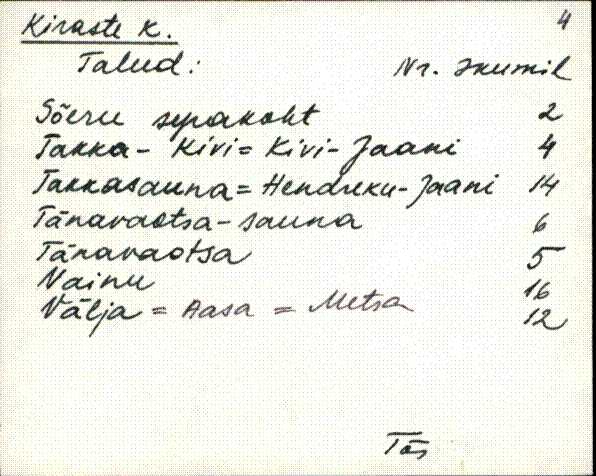 4
Kiraste k.
Talud: Nr. skumil
Sõeru sepakoht 2
Takka- Kivi= Kivi-Jaani 4
Takkasauna= Hendreku-Jaani 14
Tänavaotsa-sauna 6
Tänavaotsa 5
Nainu 16
Välja = Aasa = Metsa 12
Tõs